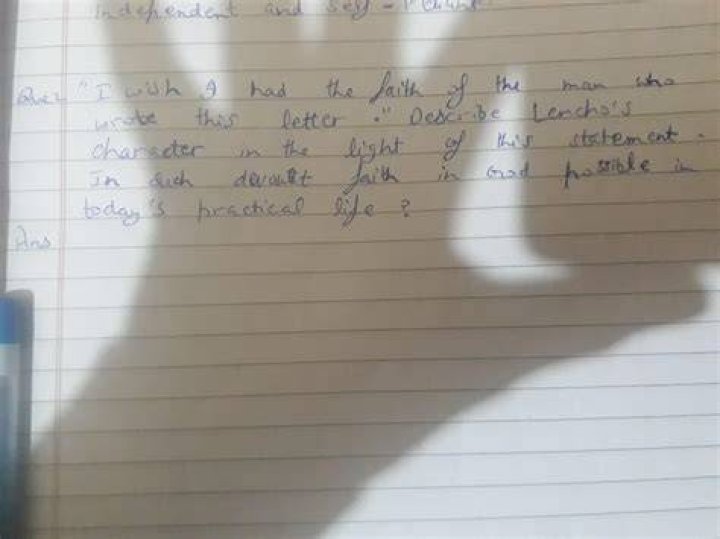 independent and self-
Que2 "I wish I had the faith of the man who
wrote this letter." Describe Lencho's
character in the light of this statement.
In such devout faith in God possible in
today's practical life?
Ans